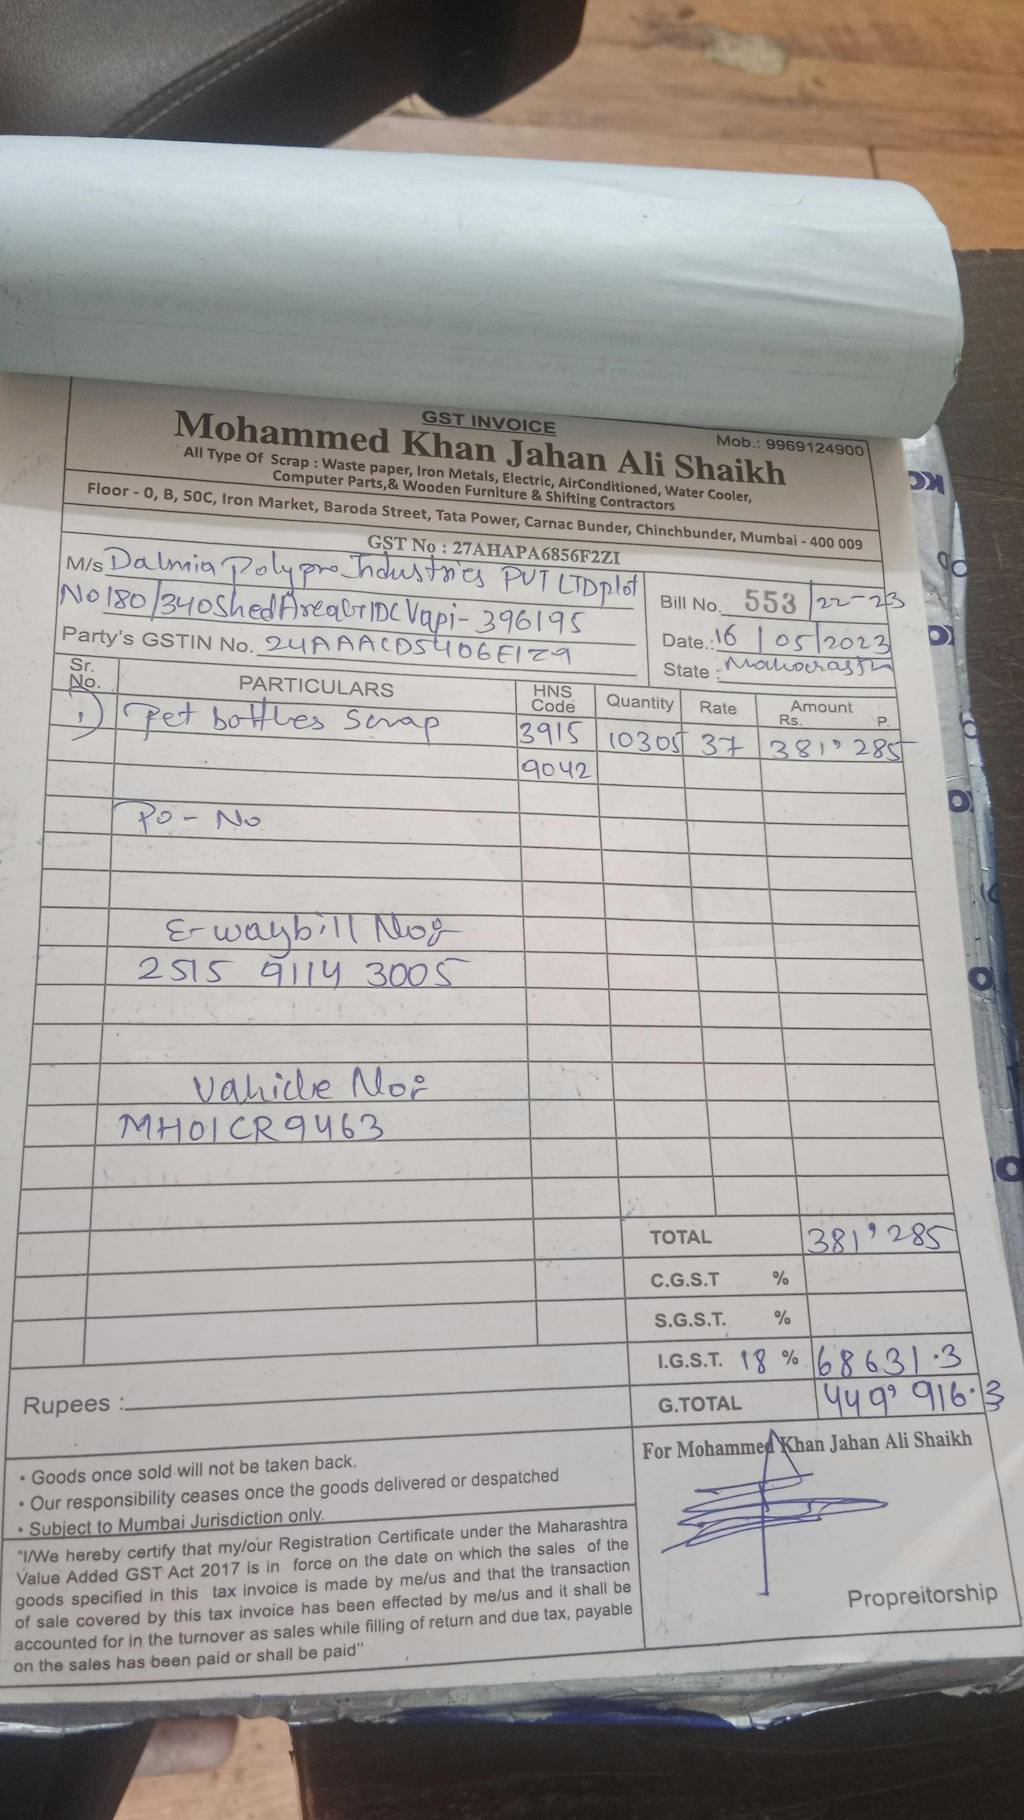 GST INVOICE
Mob.: 9969124900
Mohammed Khan Jahan Ali Shaikh
All Type Of Scrap : Waste paper, Iron Metals, Electric, AirConditioned, Water Cooler,
Computer Parts,& Wooden Furniture & Shifting Contractors
Floor - 0, B, 50C, Iron Market, Baroda Street, Tata Power, Carnac Bunder, Chinchbunder, Mumbai - 400 009
GST No : 27AHAPA6856F2ZI
M/s Dalmia Polypro Industries PVT LTD plot
No 180/340 Shed Area GIDC Vapi - 396195
Party's GSTIN No. 24AAACD5406E1Z9
Bill No. 553 /22-23
Date.: 16/05/2023
State : Mahorasth
Sr. No. PARTICULARS HNS Code Quantity Rate Amount Rs. P.
1) Pet bottles Scrap 3915 10305 37 381,285
9042
PO - No
E-waybill No:
2515 9114 3005
Vahicle No:
MH01CR9463
TOTAL 381,285
C.G.S.T %
S.G.S.T. %
I.G.S.T. 18 % 68631.3
Rupees :
G.TOTAL 449,916.3
• Goods once sold will not be taken back.
• Our responsibility ceases once the goods delivered or despatched
• Subject to Mumbai Jurisdiction only.
"I/We hereby certify that my/our Registration Certificate under the Maharashtra
Value Added GST Act 2017 is in force on the date on which the sales of the
goods specified in this tax invoice is made by me/us and that the transaction
of sale covered by this tax invoice has been effected by me/us and it shall be
accounted for in the turnover as sales while filling of return and due tax, payable
on the sales has been paid or shall be paid"
For Mohammed Khan Jahan Ali Shaikh
Propreitorship